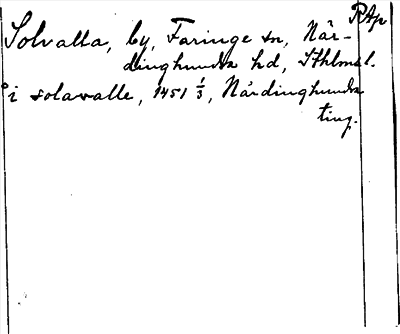 RAp
Solvalla, by, Faringe sn, När-
dinghundra hd, Sthlmsl.
i solavalle, 1451 1/3, Närdinghundra
ting.